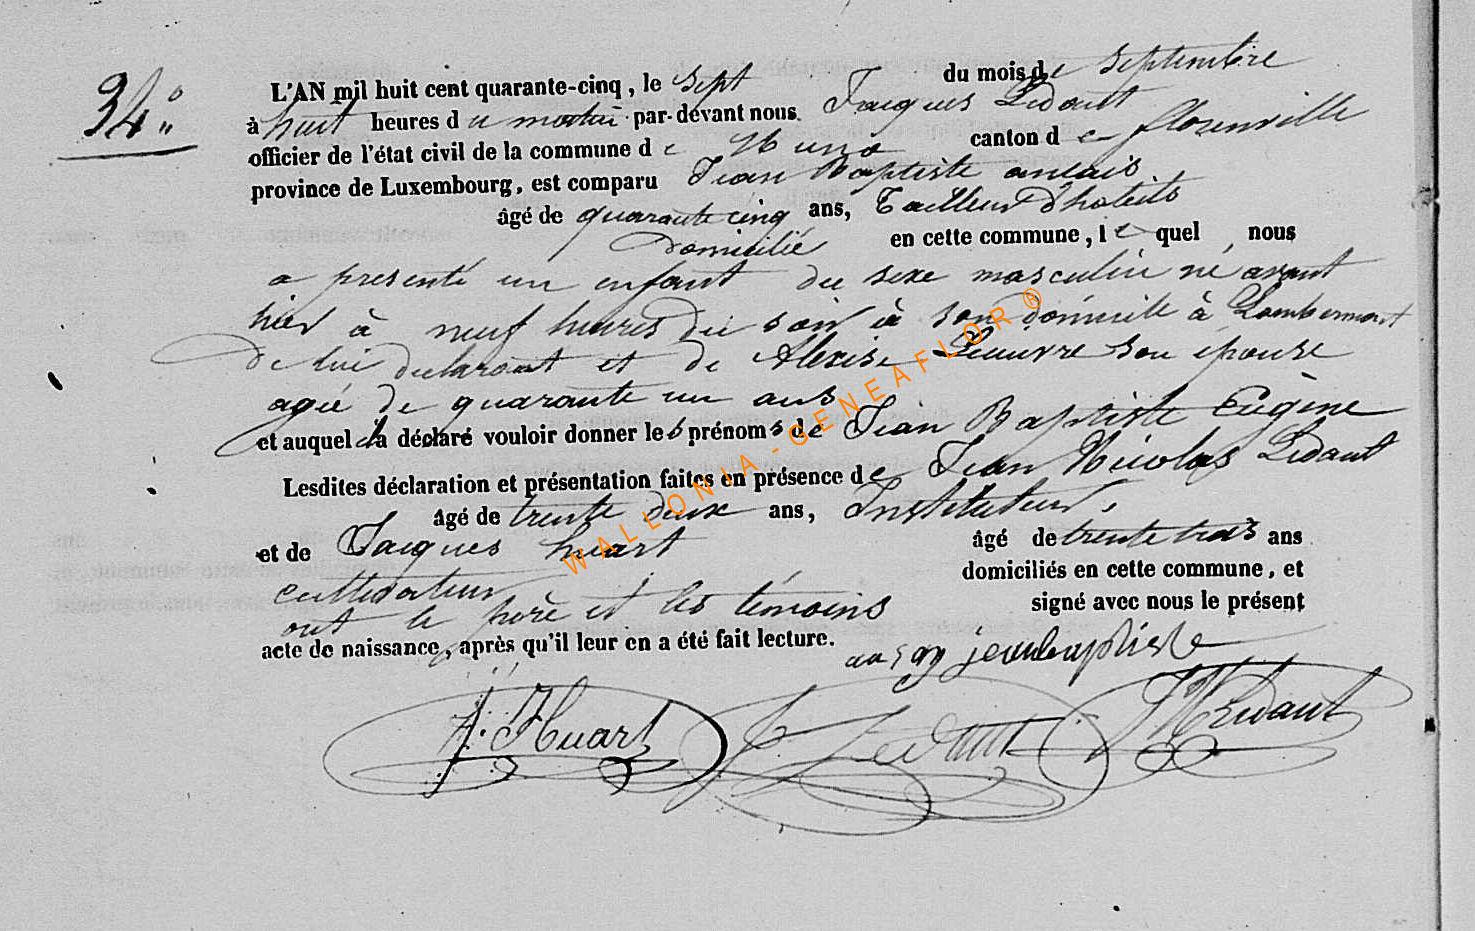 34°
L'AN mil huit cent quarante-cinq, le sept du mois de septembre
à huit heures du matin par-devant nous Jacques Lidant
officier de l'état civil de la commune de Muno canton de florenville
province de Luxembourg, est comparu Jean Baptiste
âgé de quarante cinq ans, Tailleur d'habits
Domicilié en cette commune, lequel nous
a presenté un enfant du sexe masculin né avant
hier à neuf heures du soir à son domicile à Lambermont
de lui declarant et de son épouse
agée de quarante un ans
et auquel il a déclaré vouloir donner les prénoms de Jean Baptiste Eugène
Lesdites déclaration et présentation faites en présence de Jean Nicolas Lidant
âgé de trente deux ans, Instituteur,
et de Jacques huart âgé de trente trois ans
cultivateur domiciliés en cette commune, et
ont le père et les témoins signé avec nous le présent
acte de naissance, après qu'il leur en a été fait lecture.
jeanbaptiste
J. Huart Lidant JNLidant
WALLONIA-GENEAFLOR ®